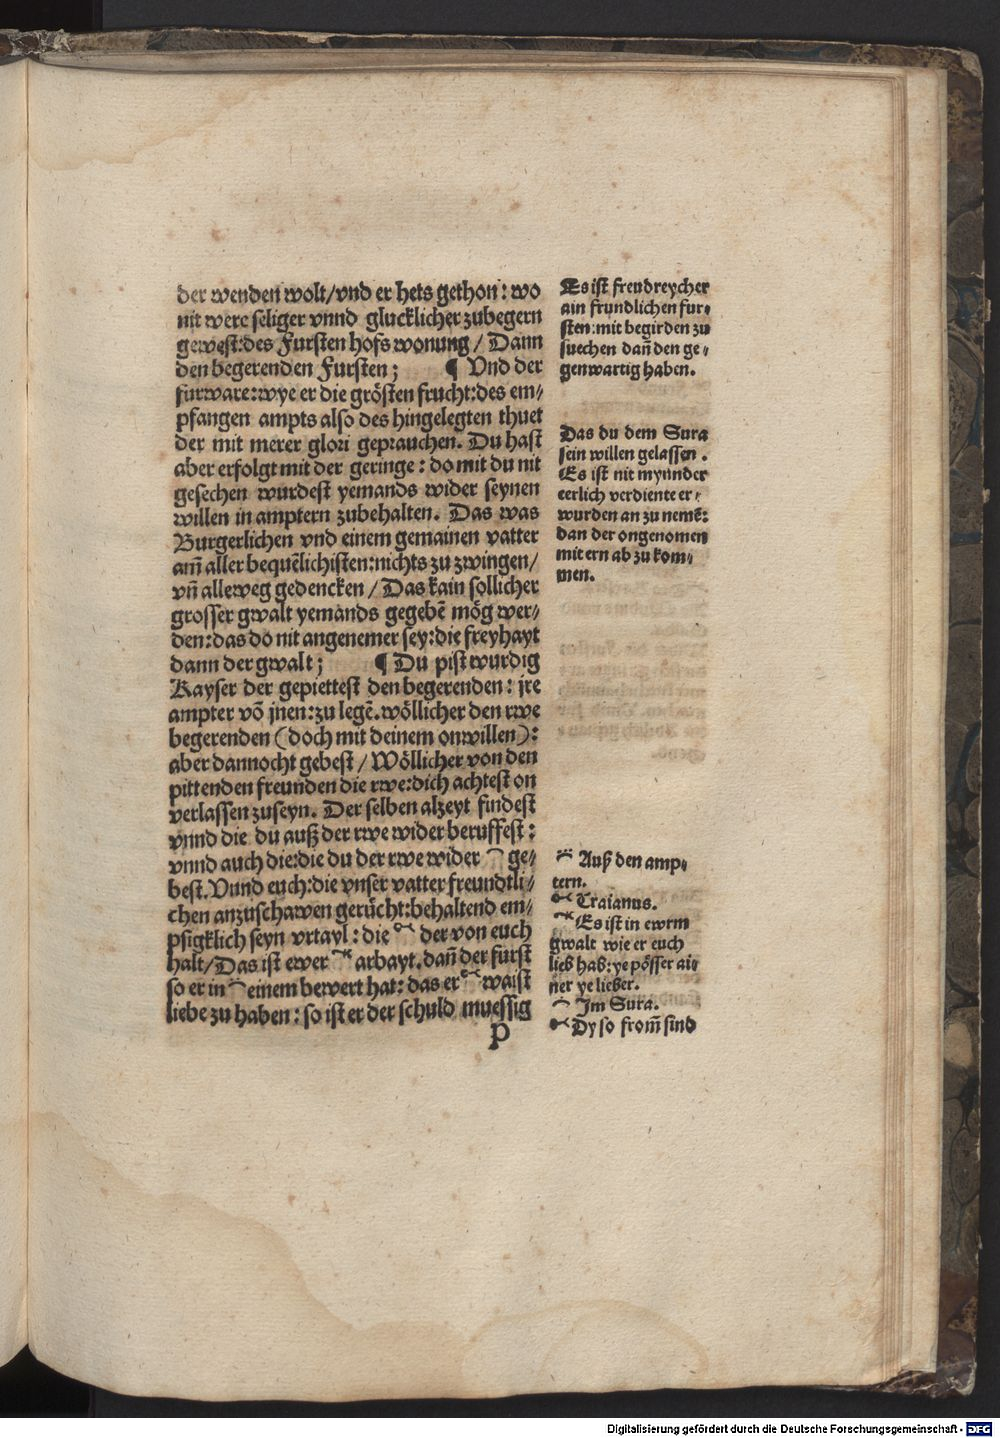 der wenden wolt/vnd er hets gethon: wo
nit were seliger vnnd glucklicher zubegern
gewest:des Fursten hofs wonung/ Dann
den begerenden Fursten; ¶ Vnd der
furware:wye er die grösten frucht:des em⸗
pfangen ampts also des hingelegten thuet
der mit merer glori geprauchen. Du hast
aber erfolgt mit der geringe: do mit du nit
gesechen wurdest yemands wider seynen
willen in amptern zubehalten. Das was
Burgerlichen vnd einem gemainen vatter
am̃ aller bequẽlichisten:nichts zu zwingen/
vñ alleweg gedencken/Das kain sollicher
grosser gwalt yemands gegebẽ mög wer⸗
den:das do nit angenemer sey:die freyhayt
dann der gwalt; ¶ Du pist wurdig
Kayser der gepiettest den begerenden: jre
ampter võ jnen:zu legẽ.wöllicher den rwe
begerenden (doch mit deinem onwillen):
aber dannocht gebest/Wöllicher von den
pittenden freunden die rwe:dich achtest on
verlassen zuseyn. Der selben alzeyt findest
vnnd die du auß der rwe wider beruffest:
vnnd auch die:die du der rwe wider ge⸗
best.Vnnd euch:die vnser vatter freundtli⸗
chen anzuschawen gerücht:behaltend em⸗
psigklich seyn vrtayl: die der von euch
halt/Das ist ewer arbayt.dañ der fürst
so er in einem bewert hat: das er waist
liebe zu haben: so ist er der schuld muessig
P
Es ist freudreycher
ain frundlichen fur⸗
sten:mit begirden zu
suechen dañ den ge⸗
genwartig haben.
Das du dem Sura
sein willen gelassen.
Es ist nit mynnder
eerlich verdiente er⸗
wurden an zu nemẽ:
dan der ongenomen
mit ern ab zu kom⸗
men.
Auß den amp⸗
tern.
Traianus.
Es ist in ewrm
gwalt wie er euch
lieb hab:ye pösser ai⸗
ner ye lieber.
Im Sura.
Dy so from̃ sind
Digitalisierung gefördert durch die Deutsche Forschungsgemeinschaft - DFG